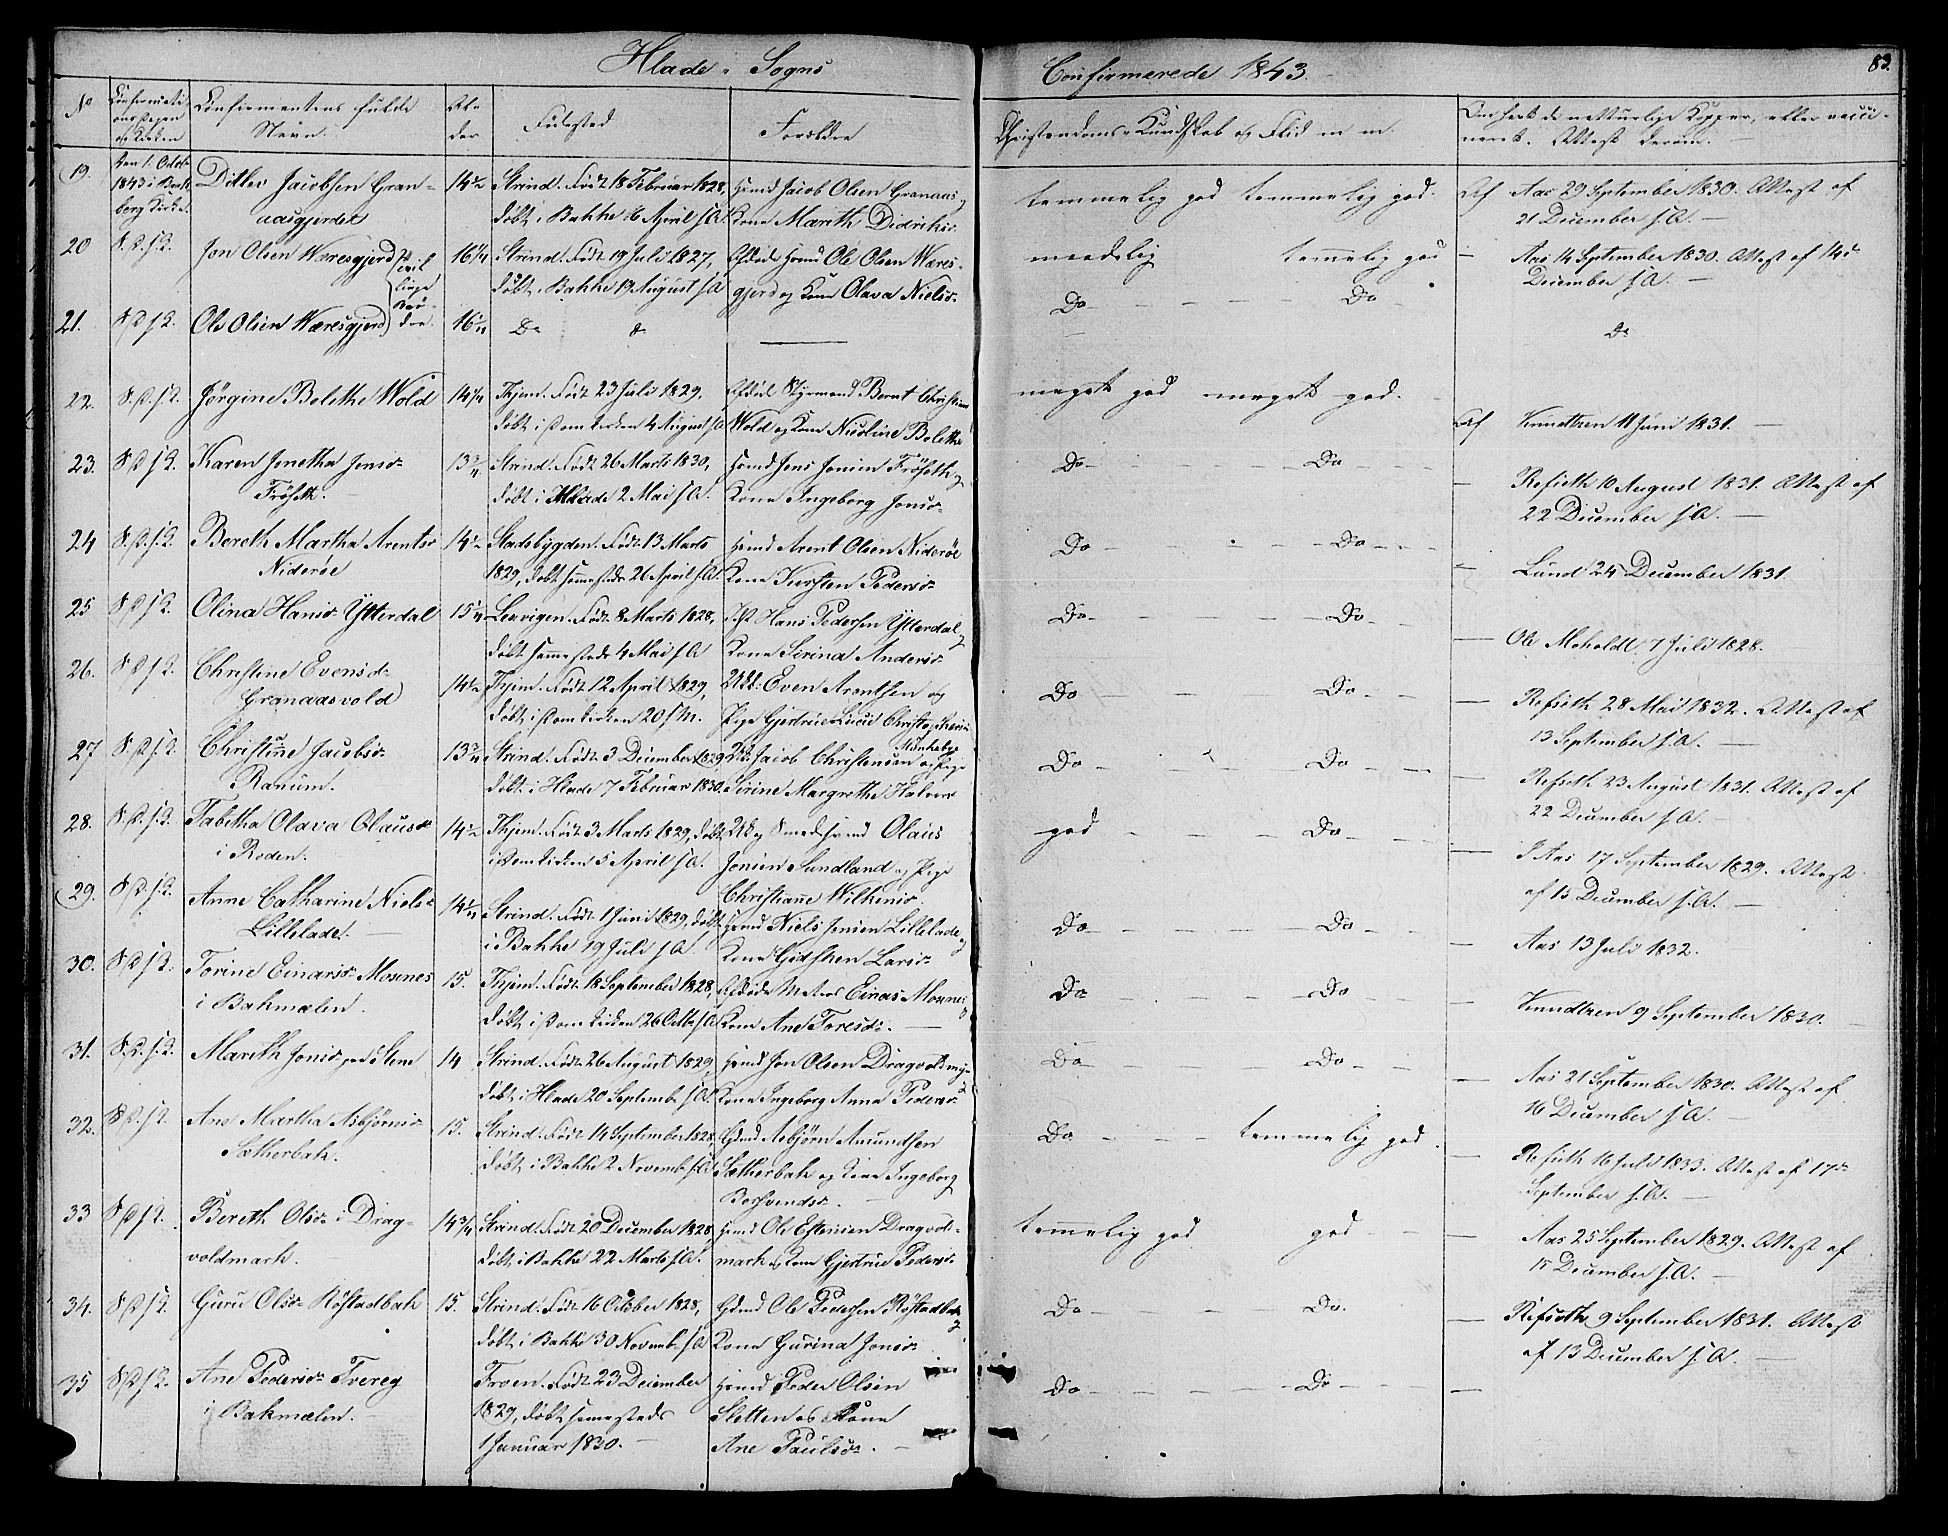 Hlade Sogns
Confirmerede 1843.
83.
No
Confirmati-
ons Dagen
og Kirken
Confirmantens fulde
Navn.
Al-
der
Födested
Forældre
Christendoms-Kundskab og Flid m. m.
Om havt de naturlige Kopper, eller vacci-
neret. Attest derom.
19.
den 1. Octbr
1843 i Bak-
berg Kirke.
Ditlev Jacobsen Gran-
aasgjerdet
14½
Strind. Födt 18 Februar 1828,
döbt i Bakke 6 April s. A.
Hmd Jacob Olsen Granaas og
Kone Marith Didriks.
temmelig god temmelig god.
Af Aas 29 September 1830. Attest af
21 December s. A. —
20
Jon Olsen Wæresgjerd
Tvil-
linge
Brö-
dre.
16¼
Strind. Födt 19 Juli 1827,
döbt i Bakke 19 August s. A.
Afdöde Hmd Ole Olsen Wæres-
gjerd og Kone Olava Nielsd.
maadelig temmelig god
— Aas 14 September 1830. Attest af 14de
December s. A. —
21.
Ole Olsen Wæresgjerd
16¼
Do do
Do — — — Do —
do
22.
Jörgine Bolethe Wold
14¼
Thjem. Födt 23 Juli 1829,
döbt i Domkirken 4 August s. A.
Afdöd Styrmand Bernt Christian
Wold og Kone Nicoline Bolethe
meget god meget god.
Af Knudtzen 11 Juni 1831. —
23.
Karen Jonetha Jensd.
Fröseth.
13¾
Strind. Födt 26 Marts 1830,
döbt i Hlade 2 Mai s. A.
Hmd Jens Jonsen Fröseth og
Kone Ingeborg Jonsd.
Do — — — Do —
— Refseth 10 August 1831. Attest af
22 December s. A. —
24
Bereth Martha Arentsd.
Nideröe
14½
Stadsbygden. Födt 13 Marts
1829, döbt sammesteds 26 April s. A.
Hmd Arent Olsen Nideröe
Kone Kirsten Pedersd.
Do — — — Do —
— Lund 24 December 1831.
25
Olina Hansd. Ytterdal
15½
Lexvigen. Födt 8 Marts 1828,
döbt sammesteds 4 Mai s. A.
Hans Pedersen Ytterdal og
Kone Serina Andersd.
Do — — — Do —
— Ole Moholdt 7 Juli 1828.
26.
Christine Evensd.
Granaasvold
14½
Thjem. Födt 12 April 1829,
döbt i Domkirken 20 s. M.
Uk: Even Arentsen og
Pige Gjertrue Lucie Christophersd.
Munkeby
Do — — — Do —
— Refseth 28 Mai 1832. Attest af
13 September s. A. —
27
Christiane Jacobsd.
Ranum.
13¾
Strind. Födt 3 December 1829,
döbt i Hlade 7 Februar 1830.
Uk. Jacob Christensen og Pige
Sirine Margrethe Halvors
Do — — — Do —
— Refseth 23 August 1831. Attest af
22 December s. A. —
28.
Tabitha Olava Olausd.
i Roden.
14½
Thjem. Födt 3 Marts 1829, döbt
i Domkirken 5 April s. A.
Uk og Smedsvend Olaus
Jonsen Sundland og Pige
Christianne Wilkensd.
god — — Do —
— I Aas 17 September 1829. Attest
af 15 December s. A. —
29.
Anne Catharine Nielsd.
Lillelade. —
14¼
Strind. Födt 1 Juni 1829, döbt
i Bakke 19 Juli s. A.
Hmd Niels Jensen Lillelade og
Kone Gidsken Larsd.
Do — — — Do —
— Aas 13 Juli 1832.
30.
Torine Einarsd. Mosenes
i Bakmælen.
15.
Thjem. Födt 18 September 1828,
döbt i Domkirken 26 Octbr s. A.
Afdöde Matros Einar Mosenes
Kone Ane Toresd. —
Do — — — Do —
— Knudtzen 9 September 1830. —
31.
Marith Jonsd. paa Stene
14
Strind. Födt 26 August 1829,
döbt i Hlade 20 Septembr s. A.
Hmd Jon Olsen Dragvoldmyr
Kone Ingeborg Anna Pedersd.
Do — — — Do —
— Aas 21 September 1830. Attest af
16 December s. A. —
32.
Ane Martha Asbjörnsd.
Sætherbak.
15.
Strind. Födt 14 September 1828,
döbt i Bakke 2 Novembr s. A.
Gdmd Asbjörn Amundsen
Sætherbak og Kone Ingeborg
Bersvendsd. —
Do — — — temmelig god.
— Refseth 16 Juli 1833. Attest af 17de
September s. A. —
33
Bereth Olsd. i Drag-
voldmark.
14¾
Strind. Födt 20 December 1828,
döbt i Bakke 22 Marts s. A.
Hmd Ole Estensen Dragvold-
mark og Kone Gjertrue Pedersd.
temmelig god god —
— Aas 25 September 1829. Attest af
15 December s. A. —
34.
Guru Olsd. Röstadbak
15.
Strind. Födt 16 October 1828,
döbt i Bakke 30 Novembr s. A.
Gdmd Ole Pedersen Röstadbak og
Kone Gurina Jonsd.
Do — — — Do.
— Refseth 9 September 1831. Attest
af 13 December s. A. —
35
Ane Pedersd. Tvereg
i Bakmælen. —
Froen. Födt 23 December
1829, döbt sammesteds
1 Januar 1830. —
Hmd Peder Olsen
Sletten og Kone
Ane Paulsd. —
Do — — — Do —
—